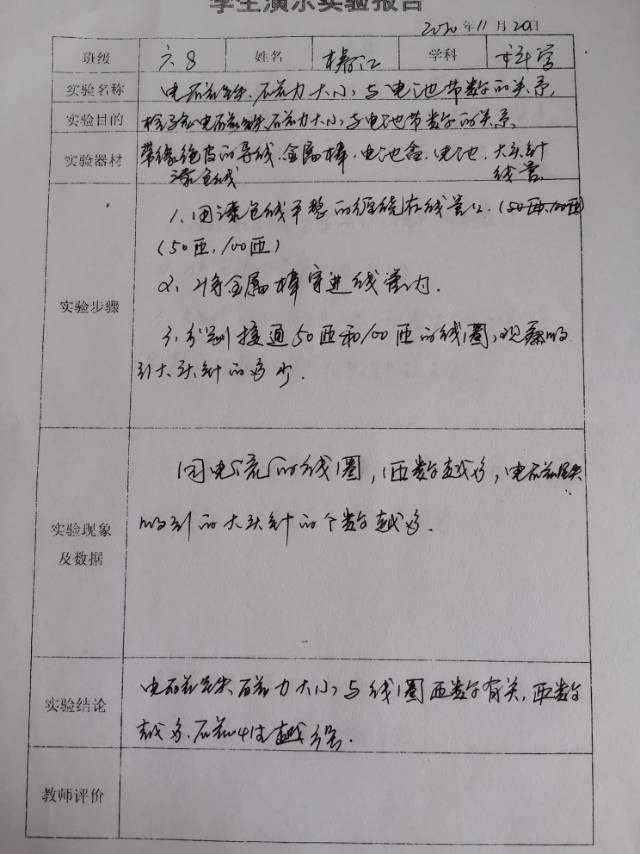 学生演示实验报告
2020年11月20日
班级 六8 姓名 学科 科学
实验名称 电磁铁磁力大小与电池节数的关系.
实验目的 检验电磁铁磁力大小与电池节数的关系.
实验器材 带绝缘皮的导线.金属棒.电池盒.电池.大头针
漆包线 线管
实验步骤
1、用漆包线平整的缠绕在线管上.(50匝,100匝)
(50匝,100匝)
2、将金属棒穿进线管内.
3、分别接通50匝和100匝的线圈,观察吸
引大头针的多少.
实验现象及数据
同电流的线圈,匝数越多,电磁铁
吸引的大头针的个数越多.
实验结论
电磁铁磁力大小与线圈匝数有关,匝数
越多.磁性越强.
教师评价